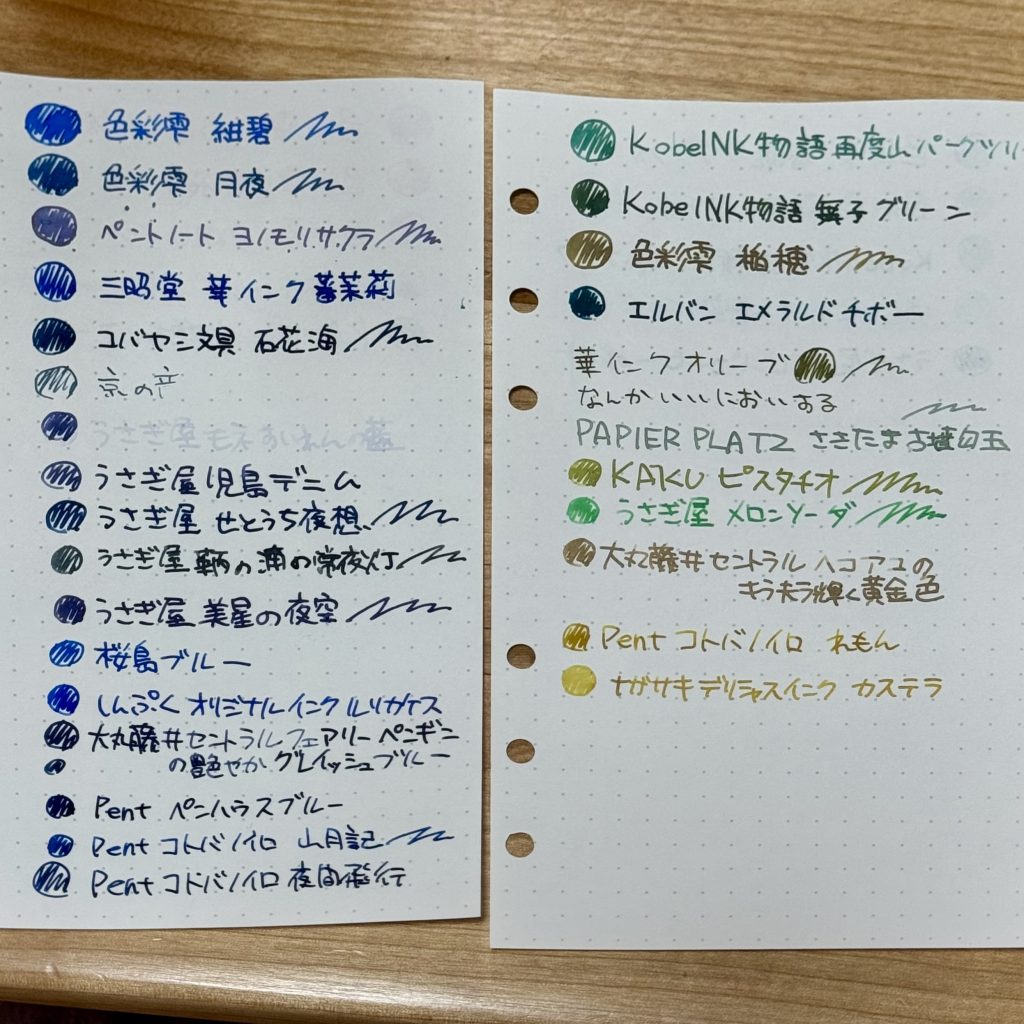 色彩雫 紺碧
色彩雫 月夜
ペントノート ヨノモリサクラ
三昭堂 華インク 蕃茉莉
コバヤシ文具 石花海
京の音
うさぎ屋 モネ すいれんの藍
うさぎ屋 児島デニム
うさぎ屋 せとうち夜想
うさぎ屋 鞆の浦の常夜灯
うさぎ屋 美星の夜空
桜島ブルー
しんぷく オリジナルインク ルリカケス
大丸藤井セントラル フェアリーペンギン
の艶やか グレイッシュブルー
Pent ペンハウスブルー
Pent コトバノイロ 山月記
Pent コトバノイロ 夜間飛行
KobeINK物語 再度山 パークツリー
KobeINK物語 撫子グリーン
色彩雫 稲穂
エルバン エメラルドチボー
華インク オリーブ
なんかいいにおいする
PAPIER PLATZ さきたま古墳白玉
KAKU ピスタチオ
うさぎ屋 メロンソーダ
大丸藤井セントラル ヘコアユの
キラキラ輝く黄金色
Pent コトバノイロ れもん
ナガサキデリシャスインク カステラ